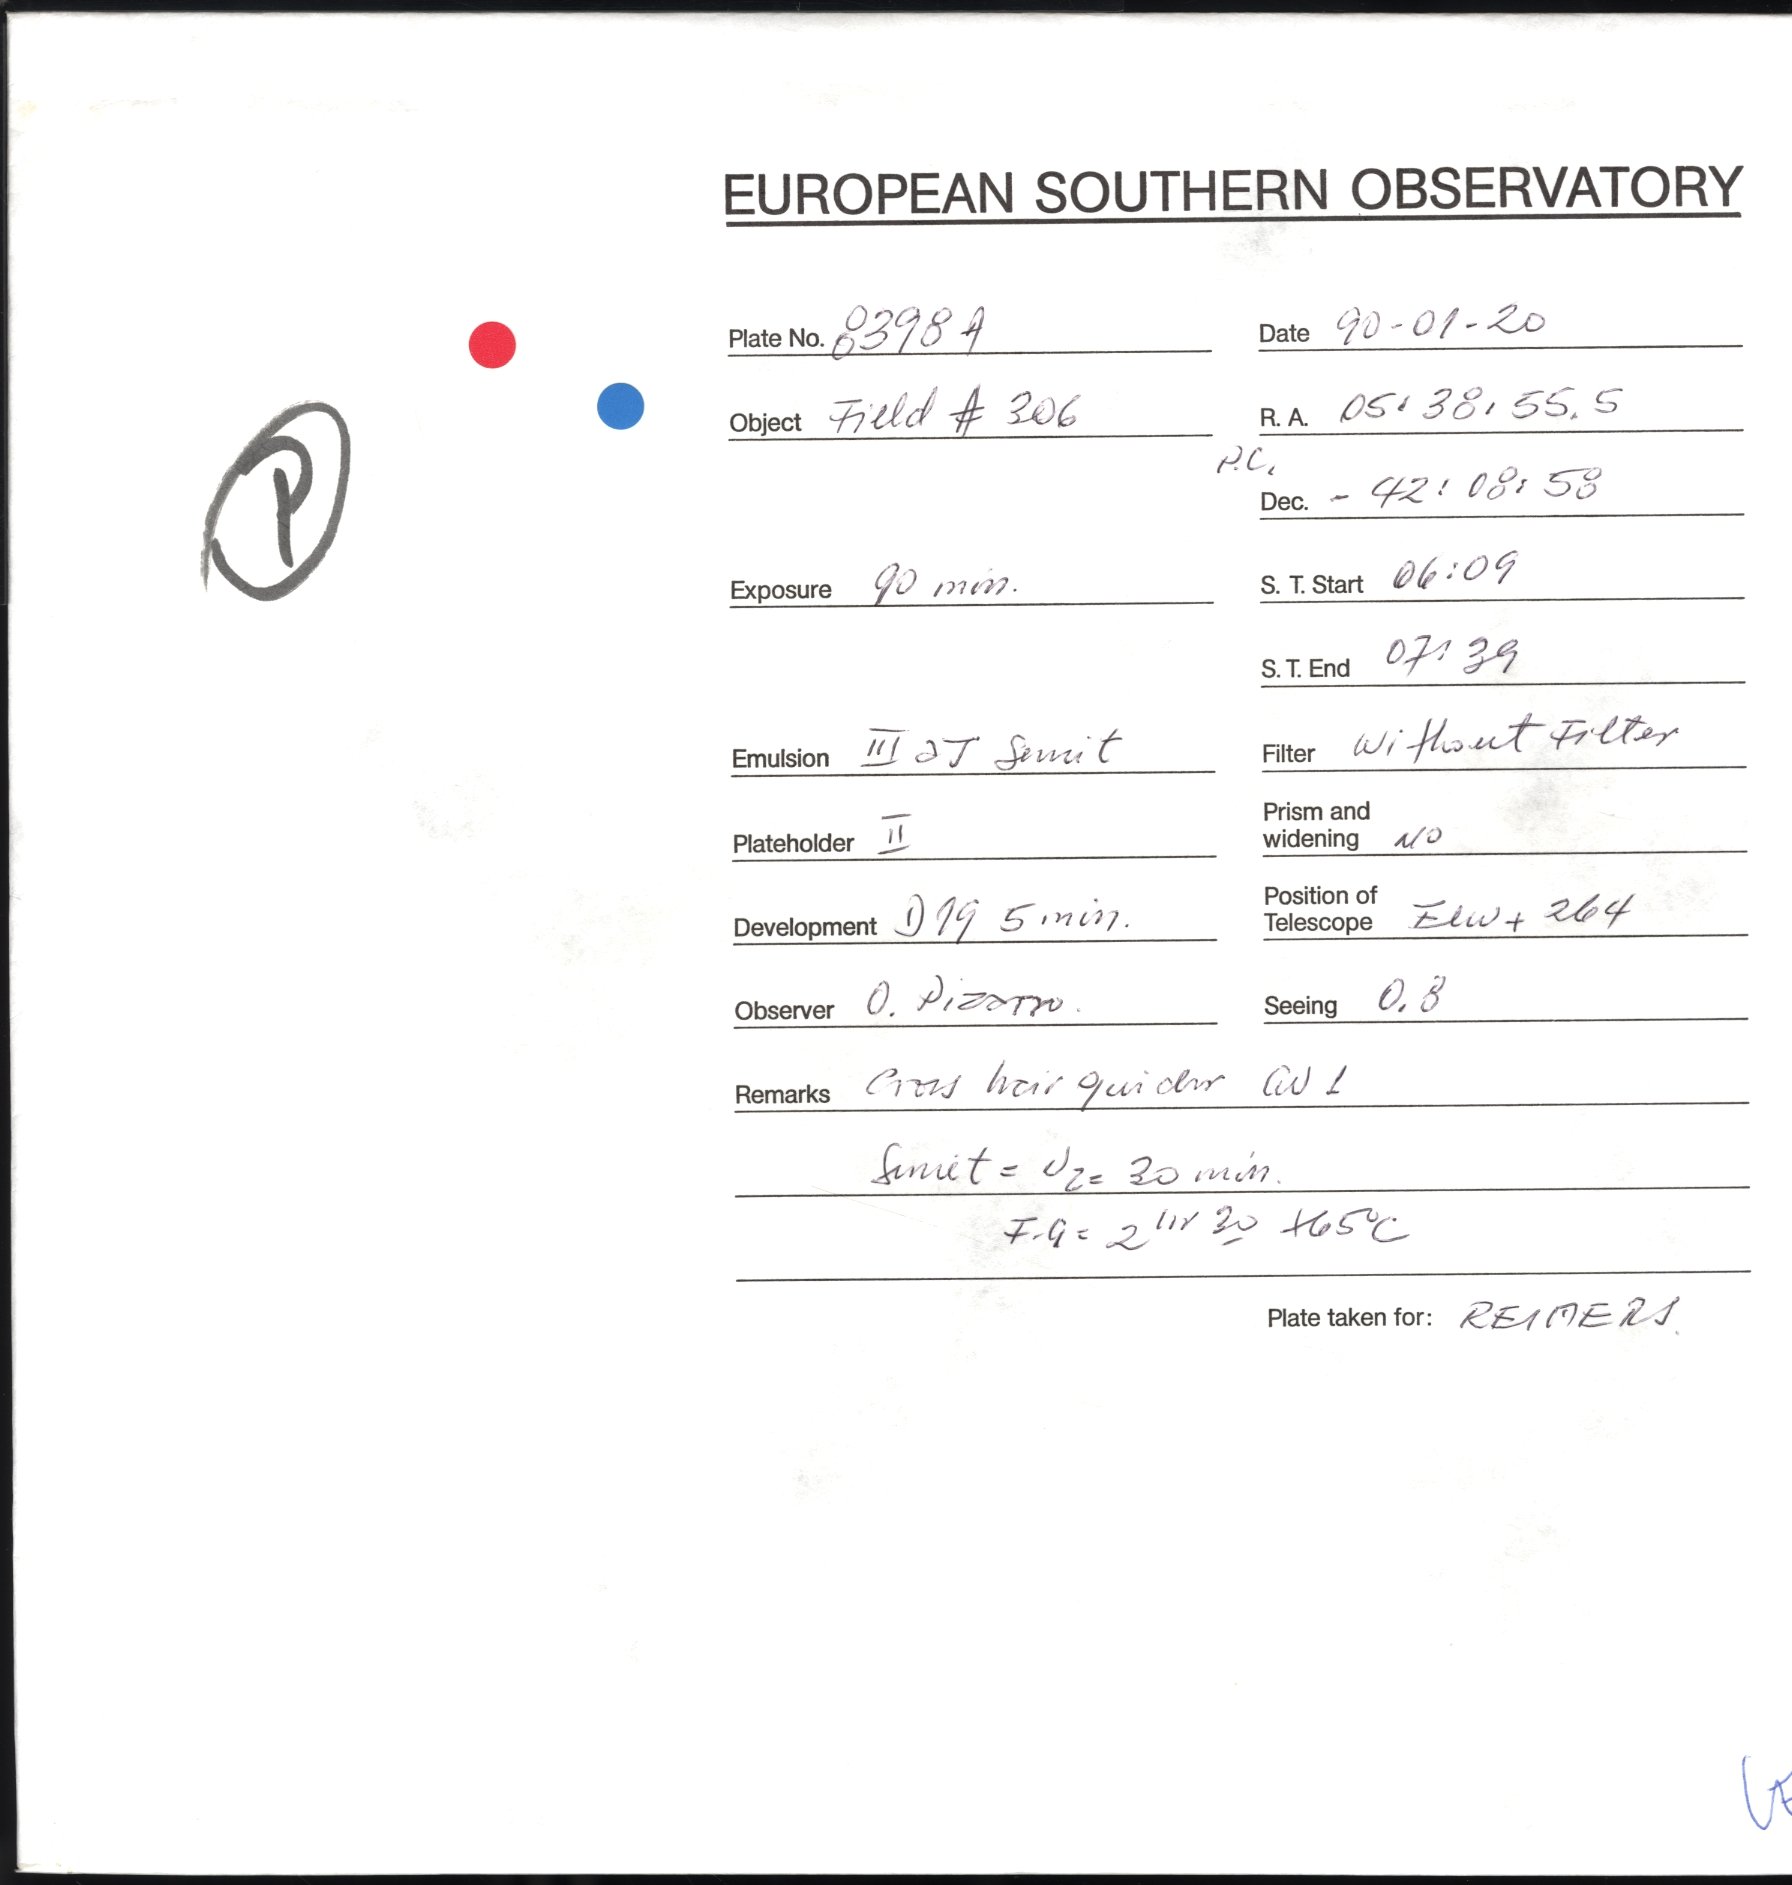 EUROPEAN SOUTHERN OBSERVATORY
Plate No. 8398 A
Date 90-01-20
Object Field # 306
R. A. 05: 38: 55.5
P.C.
Dec. - 42: 08: 58
P
Exposure 90 min.
S. T. Start 06:09
S. T. End 07: 39
Emulsion III aJ Sensit
Filter Without Filter
Plateholder II
Prism and widening NO
Development D19 5 min.
Position of Telescope E/W + 264
Observer O. Pizarro.
Seeing 0.8
Remarks Cross hair guider GW 1
Sensit = N2 = 30 min.
F.G = 2 hr 30 +65°C
Plate taken for: REIMERS.